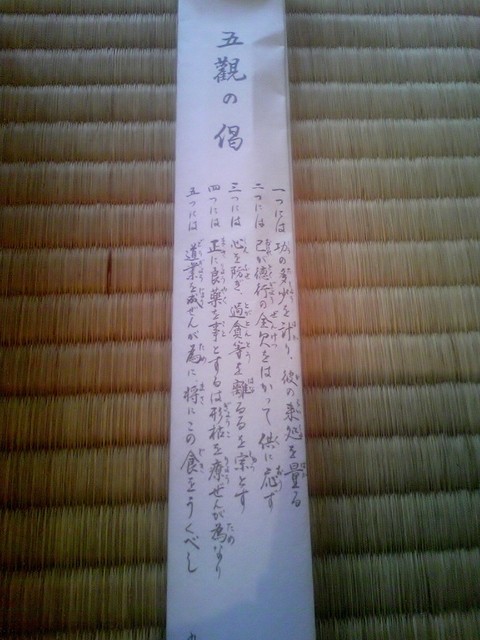 五觀の偈
一つには 功の多少を計り、彼の来処を量る
二つには 己が徳行の全欠をはかって 供に應ず
三つには 心を防ぎ、過貪等を離るるを宗とす
四つには 正に良薬を事とするは形枯を療ぜんが為なり
五つには 道業を成ぜんが為に将にこの食をうくべし